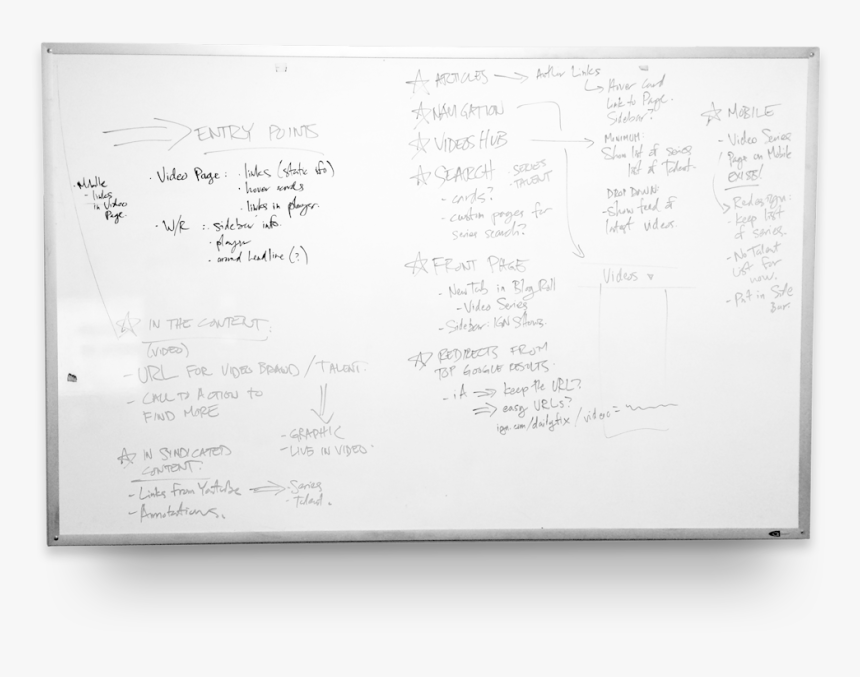 ENTRY POINTS
• Mobile
- links
in Video
Page.
• Video Page: • links (static info)
• hover cards
• links in player.
• W/R : • sidebar info.
• player
• around headline (?)
☆ IN THE CONTENT:
(VIDEO)
- URL FOR VIDEO BRAND / TALENT.
- CALL TO ACTION TO
FIND MORE
- GRAPHIC
- LIVE IN VIDEO.
☆ IN SYNDICATED
CONTENT:
- Links from YouTube ⇒ • Series
- Talent.
- Annotations.
☆ ARTICLES → Author Links
↳ Hover Card
Link to Page.
Sidebar?
☆ NAVIGATION
☆ VIDEOS HUB →
MINIMUM:
Show list of series
list of Talent.
DROP DOWN:
- Show feed of
latest videos
☆ SEARCH • SERIES
• TALENT
- cards?
- custom pages for
series search?
☆ FRONT PAGE
- New Tab in Blog Roll
- Video Series
- Sidebar: IGN Shows.
☆ REDIRECTS FROM
TOP GOOGLE RESULTS.
- iA ⇒ keep the URL?
⇒ easy URLs?
ign.com/dailyfix/video=
Videos ▾
☆ MOBILE
- Video Series
Page on Mobile
EXISTS!
Redesign:
- keep list
of series.
- No Talent
list for
now.
- Put in Side
Bar.